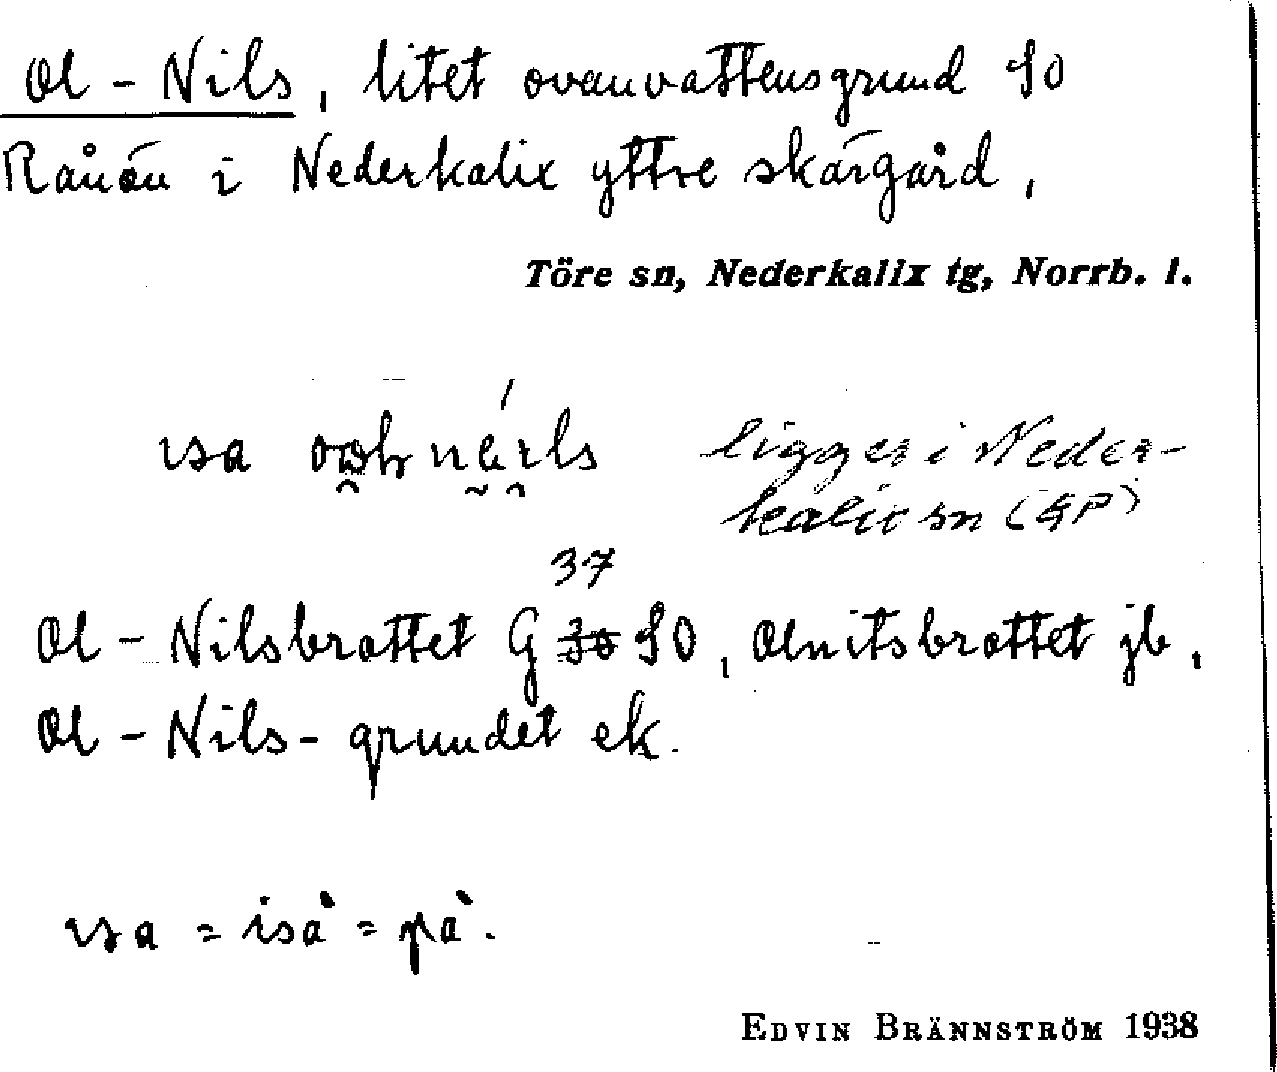 Ol - Nils, litet ovanvattensgrund SO
Rånön i Nederkalix yttre skärgård,
Töre sn, Nederkalix tg, Norrb. l.
ısa
ligger i Neder-
kalix sn (GP)
37
Ol - Nilsbrottet G 30 SO, Olnitsbrottet jb,
Ol - Nils - grundet ek.
ısa = iså = på.
EDVIN BRÄNNSTRÖM 1938